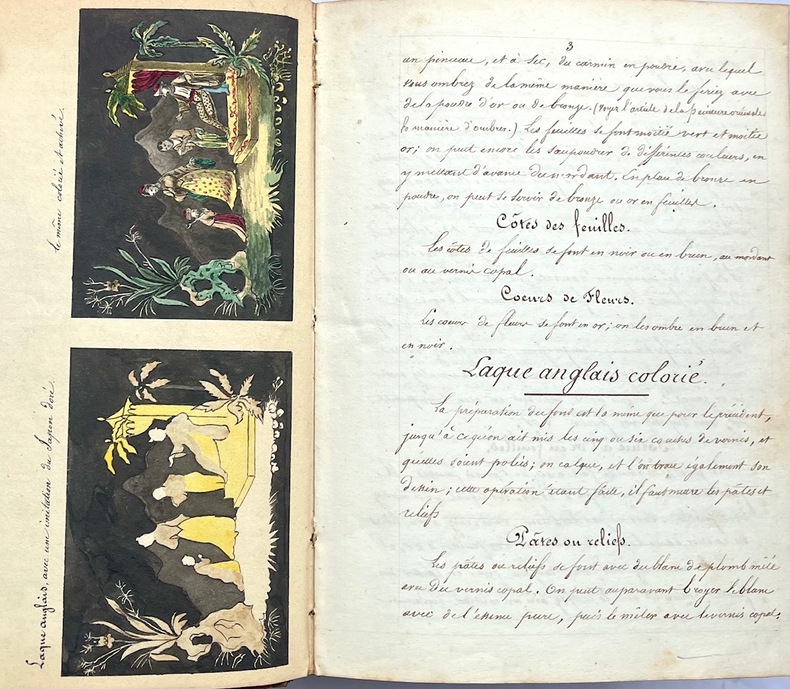 le même colorié et achevé.
Laque anglais, avec une imitation du Japon doré.
3
un pinceau, et à sec, du carmin en poudre, avec lequel
vous ombrez de la même manière que vous le feriez avec
de la poudre d'or ou de bronze. (voyez l'article de la peinture orientale
manière d'ombrer.) Les feuilles se font moitié vert et moitié
or; on peut encore les saupoudrer de différentes couleurs, en
y mettant d'avance du mordant. En place de bronze en
poudre, on peut se servir de bronze ou or en feuilles.
Côtes des feuilles.
Les côtes de feuilles se font en noir ou en brun, au mordant
ou au vernis copal.
Coeurs de Fleurs.
Les coeurs de fleurs se font en or; on les ombre en brun et
en noir.
Laque anglais colorié.
La préparation du fond est la même que pour le précédent,
jusqu'à ce qu'on ait mis les cinq ou six couches de vernis, et
qu'elles soient polies; on calque, et l'on trace également son
dessin; cette opération étant faite, il faut mettre les pâtes et
reliefs
Pâtes ou reliefs.
Les pâtes ou reliefs se font avec du blanc de plomb mêlé
avec du vernis copal. On peut auparavant broyer le blanc
avec de l'essence pure, puis le mêler avec le vernis copal.